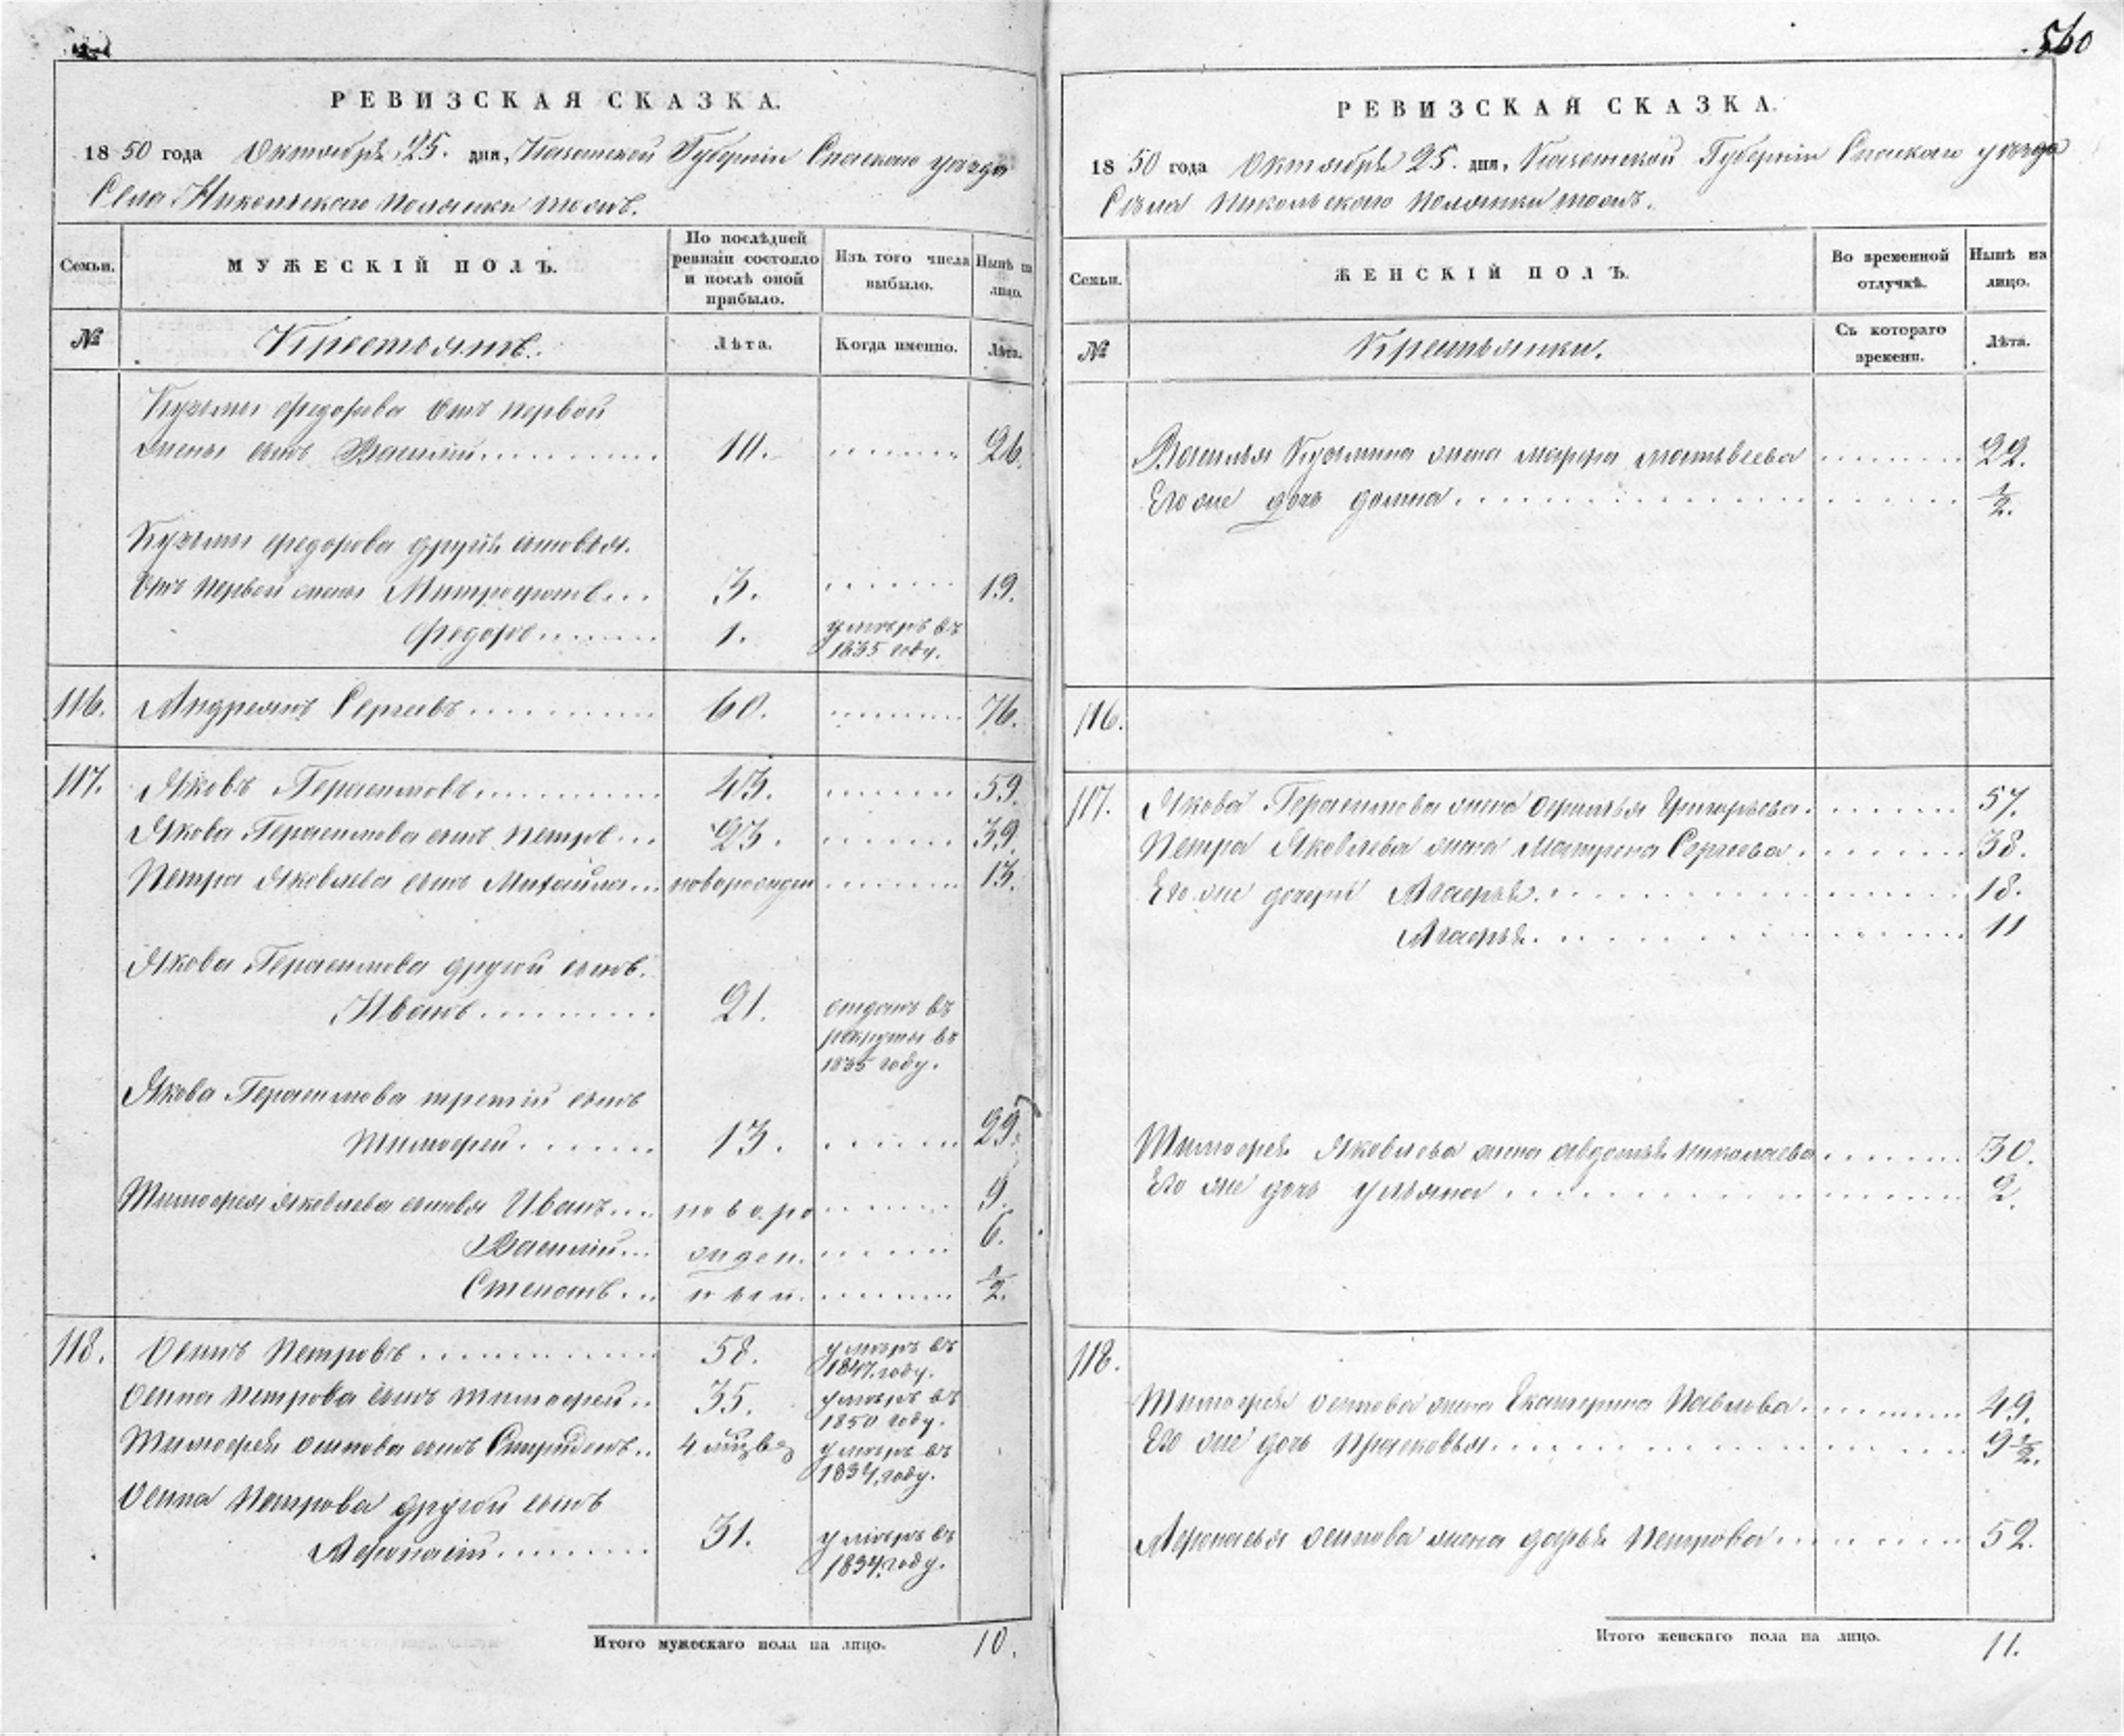 560
РЕВИЗСКАЯ СКАЗКА.
1850 года Октября 25. дня, Казанской Губернии Спаскаго уезда
Села Никольскаго Полянки тожъ.
Семьи.
МУЖЕСКІЙ ПОЛЪ.
По послѣдней ревизіи состояло и послѣ оной прибыло.
Изъ того числа выбыло.
Нынѣ на лицо.
№
Крестьянъ.
Лѣта.
Когда именно.
Лѣта.
Кузьмы Федорова отъ первой
жены сынъ Василій 10. 26.
Кузьмы Федорова другіе сыновья.
отъ первой жены Митрофанъ 3. 19.
Федоръ 1. умеръ въ
1835 году.
116. Андреянъ Сергѣевъ 60. 76.
117. Яковъ Герасимовъ 43. 59.
Якова Герасимова сынъ Петръ 23. 39.
Петра Яковлева сынъ Михайла новорожден 13.
Якова Герасимова другой сынъ.
Иванъ 21. отданъ въ
рекруты въ
1835 году.
Якова Герасимова третій сынъ
Тимофей 13. 29.
Тимофея Яковлева сыновья Иванъ новоро 9.
Василій жден. 6.
Степанъ ныи. 1/2.
118. Осипъ Петровъ 58. умеръ въ
1847. году.
Осипа Петрова сынъ Тимофей 35. умеръ въ
1850 году.
Тимофея Осипова сынъ Спиридонъ 4 умеръ въ
1837. году.
Осипа Петрова другой сынъ
Афонасій 31. умеръ въ
1834. году.
Итого мужескаго пола на лицо. 10.
РЕВИЗСКАЯ СКАЗКА.
1850 года Октября 25. дня, Казанской Губерніи Спаскаго уезда
Села Никольскаго Полянки тожъ.
Семьи.
ЖЕНСКІЙ ПОЛЪ.
Во временной отлучкѣ.
Нынѣ на лицо.
№
Крестьянки.
Съ котораго времени.
Лѣта.
Василья Кузьмина жена Марфа Матвѣева 22.
Его же дочь Домна 1/2.
116.
117. Якова Герасимова жена Григорьева 57.
Петра Яковлева жена Матрена Сергѣева 38.
Его же дочери Агафья 18.
Агафья 11
Тимофея Яковлева жена Авдотья Николаева 30.
Его же дочь Ульяна 2.
118.
Тимофея Осипова жена Екатерина Павлова 49.
Его же дочь Прасковья 9 1/2.
Афонасья Осипова жена Дарья Петрова 52.
Итого женскаго пола на лицо. 11.